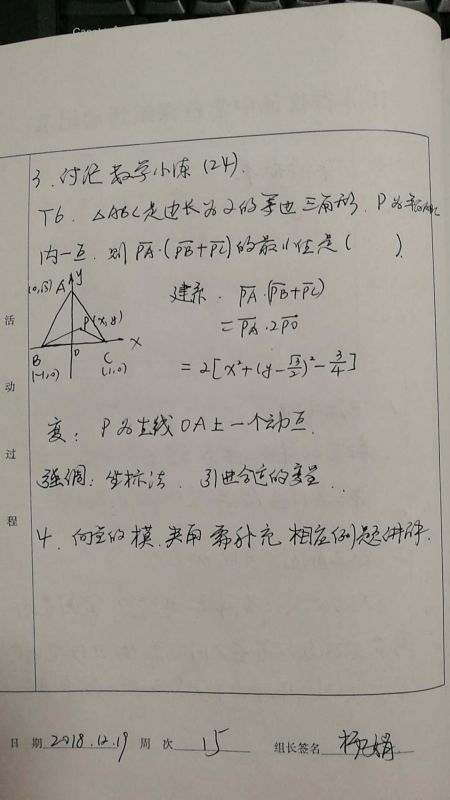 3. 讨论 数学小练 (24).
T6. △ABC是边长为2的等边三角形. P为平面ABC
内一点. 则 PA·(PB+PC) 的最小值是 ( ).
(0,√3) A y
建系. PA·(PB+PC)
P(x,y)
= PA·2PO
B O C x
(-1,0) (1,0)
= 2[x²+(y-√3/2)²-3/4]
变: P为主线OA上一个动点.
强调: 坐标法. 引进合适的变量.
4. 向量的模. 夹角 需补充 相应例题讲解.
活
动
过
程
日 期 2018.12.19 周 次 15 组长签名